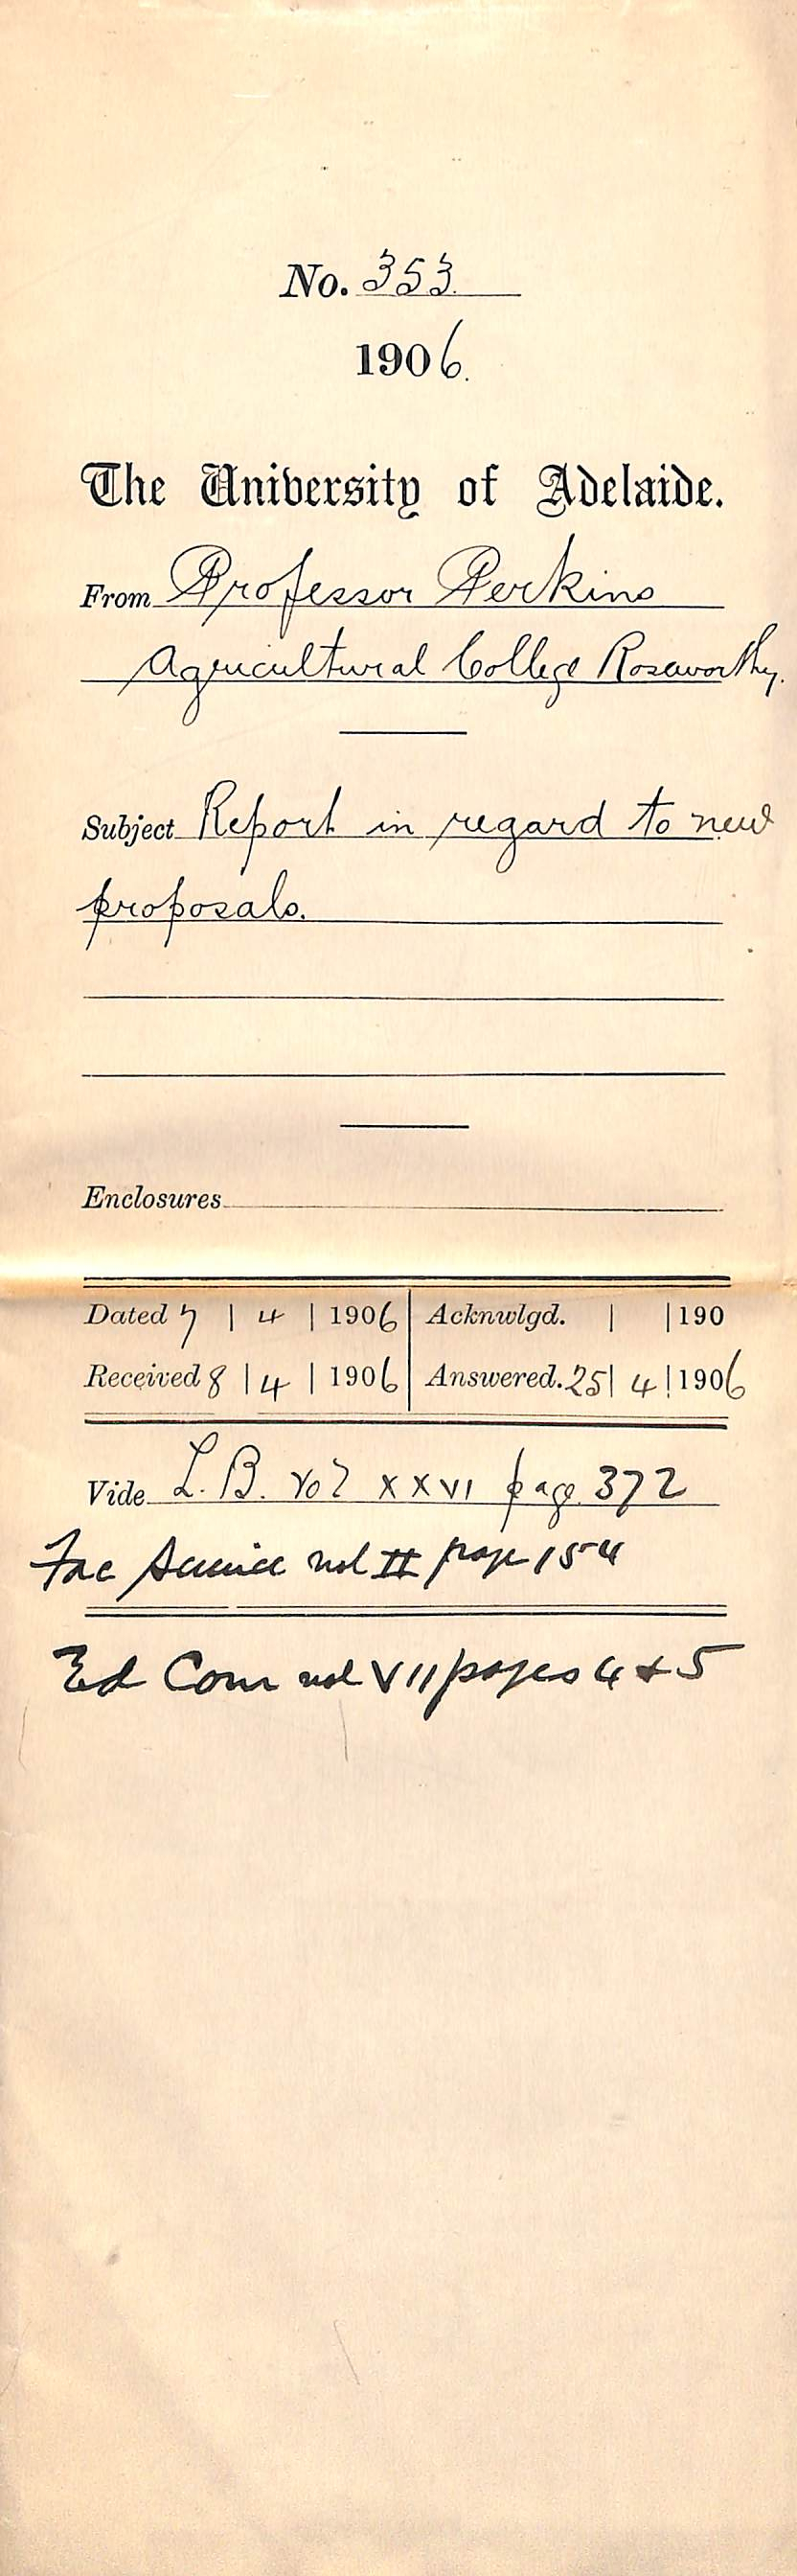 No. 353.
1906.
The University of Adelaide.
From Professor Perkins
Agricultural College Roseworthy.
Subject Report in regard to new
proposals.
Enclosures
Dated 7 | 4 | 1906 Acknwlgd. | | 190
Received 8 | 4 | 1906 Answered. 25 | 4 | 1906
Vide L.B. Vol XXVI page 372
Fac Science vol II page 154
Ed Com vol VII pages 4 & 5